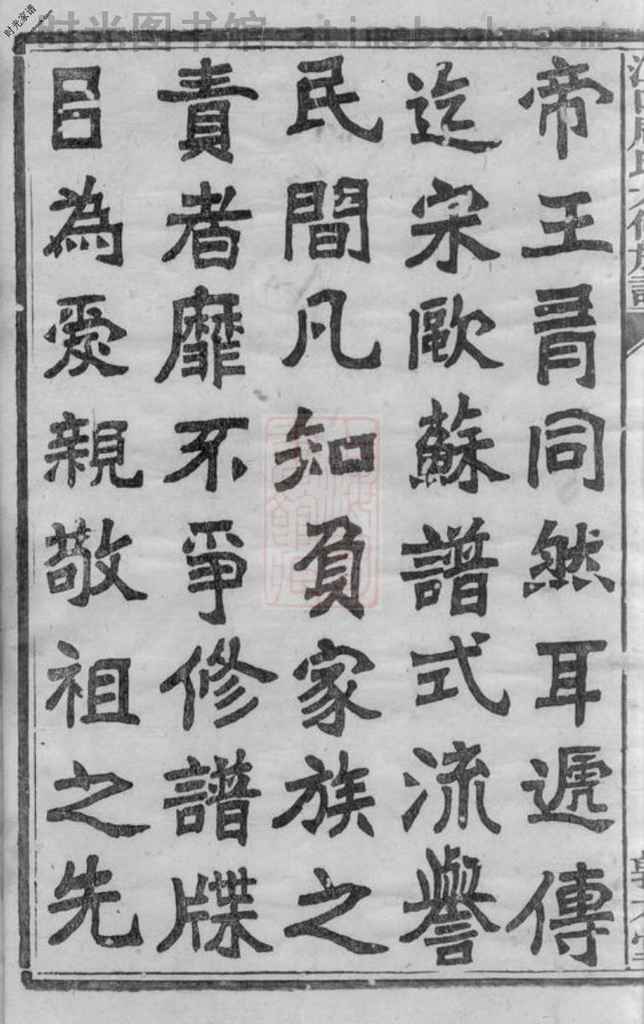 帝王胥同然耳遞傳
迄宋歐蘇譜式流譽
民間凡知負家族之
責者靡不爭修譜牒
㠯為爱親敬祖之先
时光图书馆 atimebook.com
时光家谱